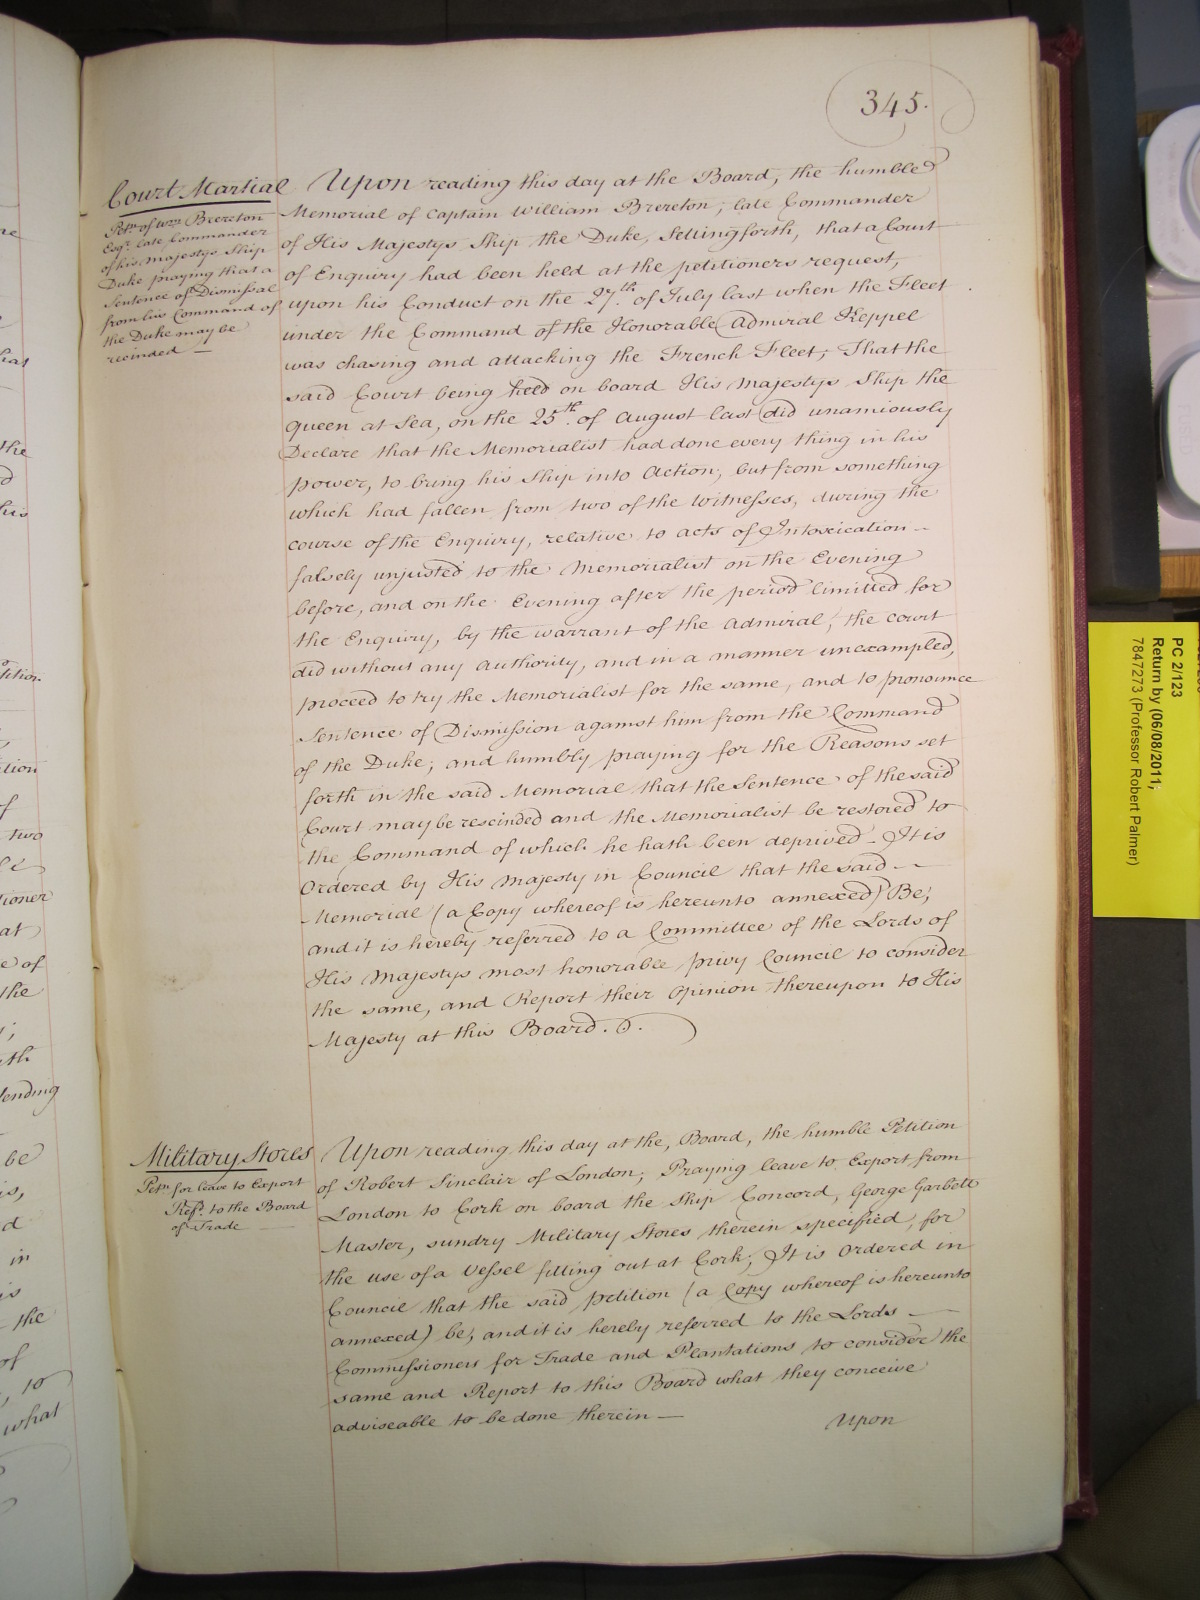 345.
Court Martial
Petn. of Wm. Brereton
Esqr. late Commander
of his Majestys Ship
Duke praying that a
Sentence of Dismissal
from his Command of
the Duke may be
recinded —
Upon reading this day at the Board, the humble
Memorial of Captain William Brereton, late Commander
of His Majestys Ship the Duke, Setting forth, that a Court
of Enquiry had been held at the petitioners request,
upon his Conduct on the 27th. of July last when the Fleet
under the Command of the Honorable Admiral Keppel
was chasing and attacking the French Fleet; That the
said Court being held on board His Majestys Ship the
Queen at Sea, on the 25th. of August last did unamiously
Declare that the Memorialist had done every thing in his
power, to bring his Ship into Action, but from something
which had fallen from two of the Witnesses, during the
course of the Enquiry, relative to acts of Intoxication —
falsely unjusted to the Memorialist on the Evening
before, and on the Evening after the period limitted for
the Enquiry, by the warrant of the Admiral, the court
did without any authority, and in a manner unexampled,
proceed to try the Memorialist for the same, and to pronounce
Sentence of Dismission against him from the Command
of the Duke; and humbly praying for the Reasons set
forth in the said Memorial that the Sentence of the said
Court may be rescinded and the Memorialist be restored to
the Command of which he hath been deprived — It is
Ordered by His Majesty in Council that the said —
Memorial (a Copy whereof is hereunto annexed) Be,
and it is hereby referred to a Committee of the Lords of
His Majestys most honorable privy Council to consider
the same, and Report their Opinion thereupon to His
Majesty at this Board.
Military Stores
Petn. for leave to Export
Refd. to the Board
of Trade
Upon reading this day at the, Board, the humble Petition
of Robert Sinclair of London; Praying leave to Export from
London to Cork on board the Ship Concord, George Garbett
Master, sundry Military Stores therein specified, for
the use of a Vessel fitting out at Cork; It is Ordered in
Council that the said petition (a Copy whereof is hereunto
annexed) be, and it is hereby referred to the Lords —
Commissioners for Trade and Plantations to consider the
same and Report to this Board what they conceive
adviseable to be done therein —
Upon
PC 2/123
Return by (06/08/2011;
7847273 (Professor Robert Palmer)